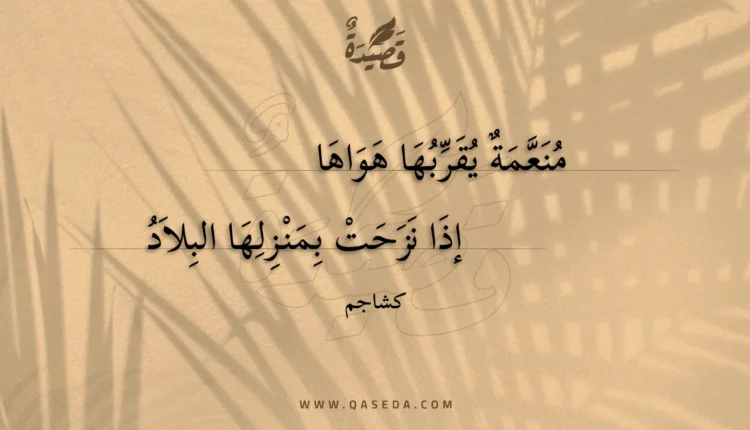 قَصِيْدَةٌ
مُنَعَّمَةٌ يُقَرِّبُهَا هَوَاهَا
إذَا نَزَحَتْ بِمَنْزِلِهَا البِلاَدُ
كشاجم
WWW.QASEDA.COM